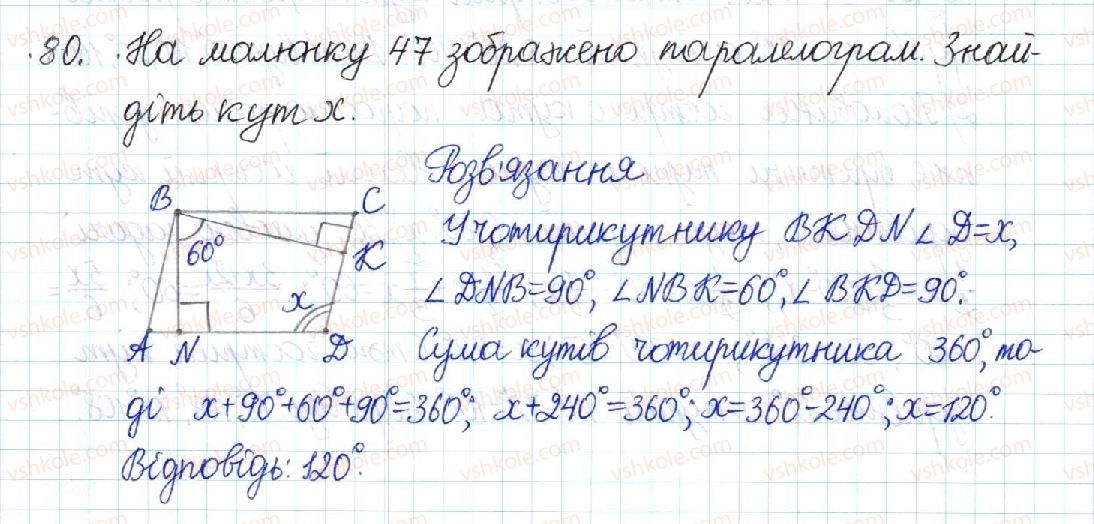 80. На малюнку 47 зображено паралелограм. Знай-
діть кут x.
Розв'язання
B
C
60°
K
x
A N D
У чотирикутнику BKDN ∠D=x,
∠DNB=90°, ∠NBK=60°, ∠BKD=90°.
Сума кутів чотирикутника 360°, то-
ді x+90°+60°+90°=360°; x+240°=360°; x=360°-240°; x=120°.
Відповідь: 120°.
vshkole.com